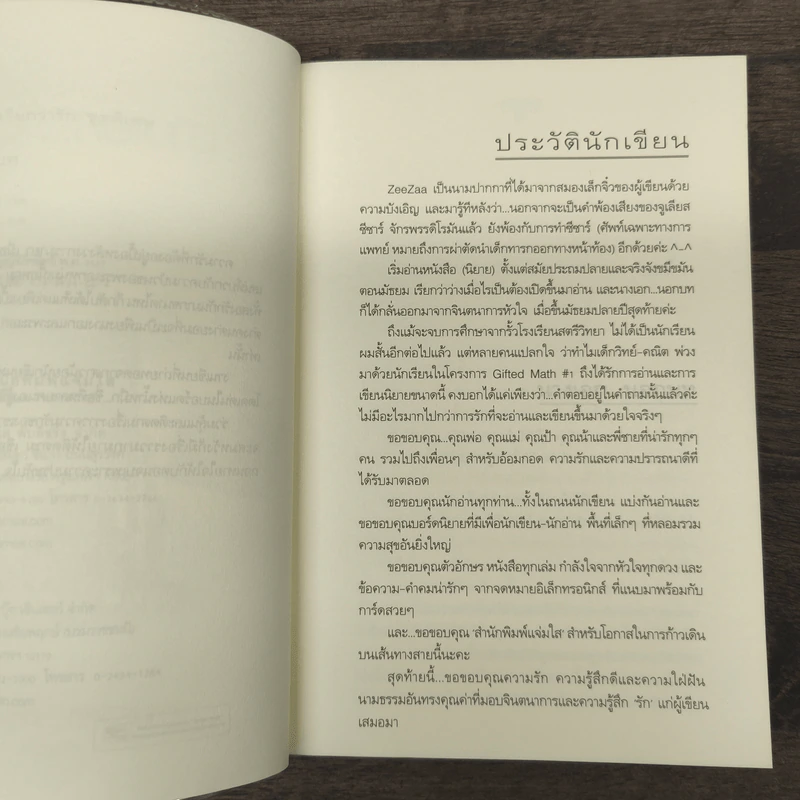 ประวัตินักเขียน
ZeeZaa เป็นนามปากกาที่ได้มาจากสมองเล็กจิ๋วของผู้เขียนด้วย
ความบังเอิญ และมารู้ทีหลังว่า...นอกจากจะเป็นคำพ้องเสียงของจูเลียส
ซีซาร์ จักรพรรดิโรมันแล้ว ยังพ้องกับการทำซีซาร์ (ศัพท์เฉพาะทางการ
แพทย์ หมายถึงการผ่าตัดนำเด็กทารกออกทางหน้าท้อง) อีกด้วยค่ะ ^_^
เริ่มอ่านหนังสือ (นิยาย) ตั้งแต่สมัยประถมปลายและจริงจังขมีขมัน
ตอนมัธยม เรียกว่าว่างเมื่อไรเป็นต้องเปิดขึ้นมาอ่าน และนางเอก...นอกบท
ก็ได้กลั่นออกมาจากจินตนาการหัวใจ เมื่อขึ้นมัธยมปลายปีสุดท้ายค่ะ
ถึงแม้จะจบการศึกษาจากรั้วโรงเรียนสตรีวิทยา ไม่ได้เป็นนักเรียน
ผมสั้นอีกต่อไปแล้ว แต่หลายคนแปลกใจ ว่าทำไมเด็กวิทย์-คณิต พ่วง
มาด้วยนักเรียนในโครงการ Gifted Math #1 ถึงได้รักการอ่านและการ
เขียนนิยายขนาดนี้ คงบอกได้แค่เพียงว่า...คำตอบอยู่ในคำถามนั้นแล้วค่ะ
ไม่มีอะไรมากไปกว่าการรักที่จะอ่านและเขียนขึ้นมาด้วยใจจริงๆ
ขอขอบคุณ...คุณพ่อ คุณแม่ คุณป้า คุณน้าและพี่ชายที่น่ารักทุกๆ
คน รวมไปถึงเพื่อนๆ สำหรับอ้อมกอด ความรักและความปรารถนาดีที่
ได้รับมาตลอด
ขอขอบคุณนักอ่านทุกท่าน...ทั้งในถนนนักเขียน แบ่งกันอ่านและ
ขอขอบคุณบอร์ดนิยายที่มีเพื่อนักเขียน-นักอ่าน พื้นที่เล็กๆ ที่หลอมรวม
ความสุขอันยิ่งใหญ่
ขอขอบคุณตัวอักษร หนังสือทุกเล่ม กำลังใจจากหัวใจทุกดวง และ
ข้อความ-คำคมน่ารักๆ จากจดหมายอิเล็กทรอนิกส์ ที่แนบมาพร้อมกับ
การ์ดสวยๆ
และ...ขอขอบคุณ 'สำนักพิมพ์แจ่มใส' สำหรับโอกาสในการก้าวเดิน
บนเส้นทางสายนี้นะคะ
สุดท้ายนี้...ขอขอบคุณความรัก ความรู้สึกดีและความใฝ่ฝัน
นามธรรมอันทรงคุณค่าที่มอบจินตนาการและความรู้สึก 'รัก' แก่ผู้เขียน
เสมอมา